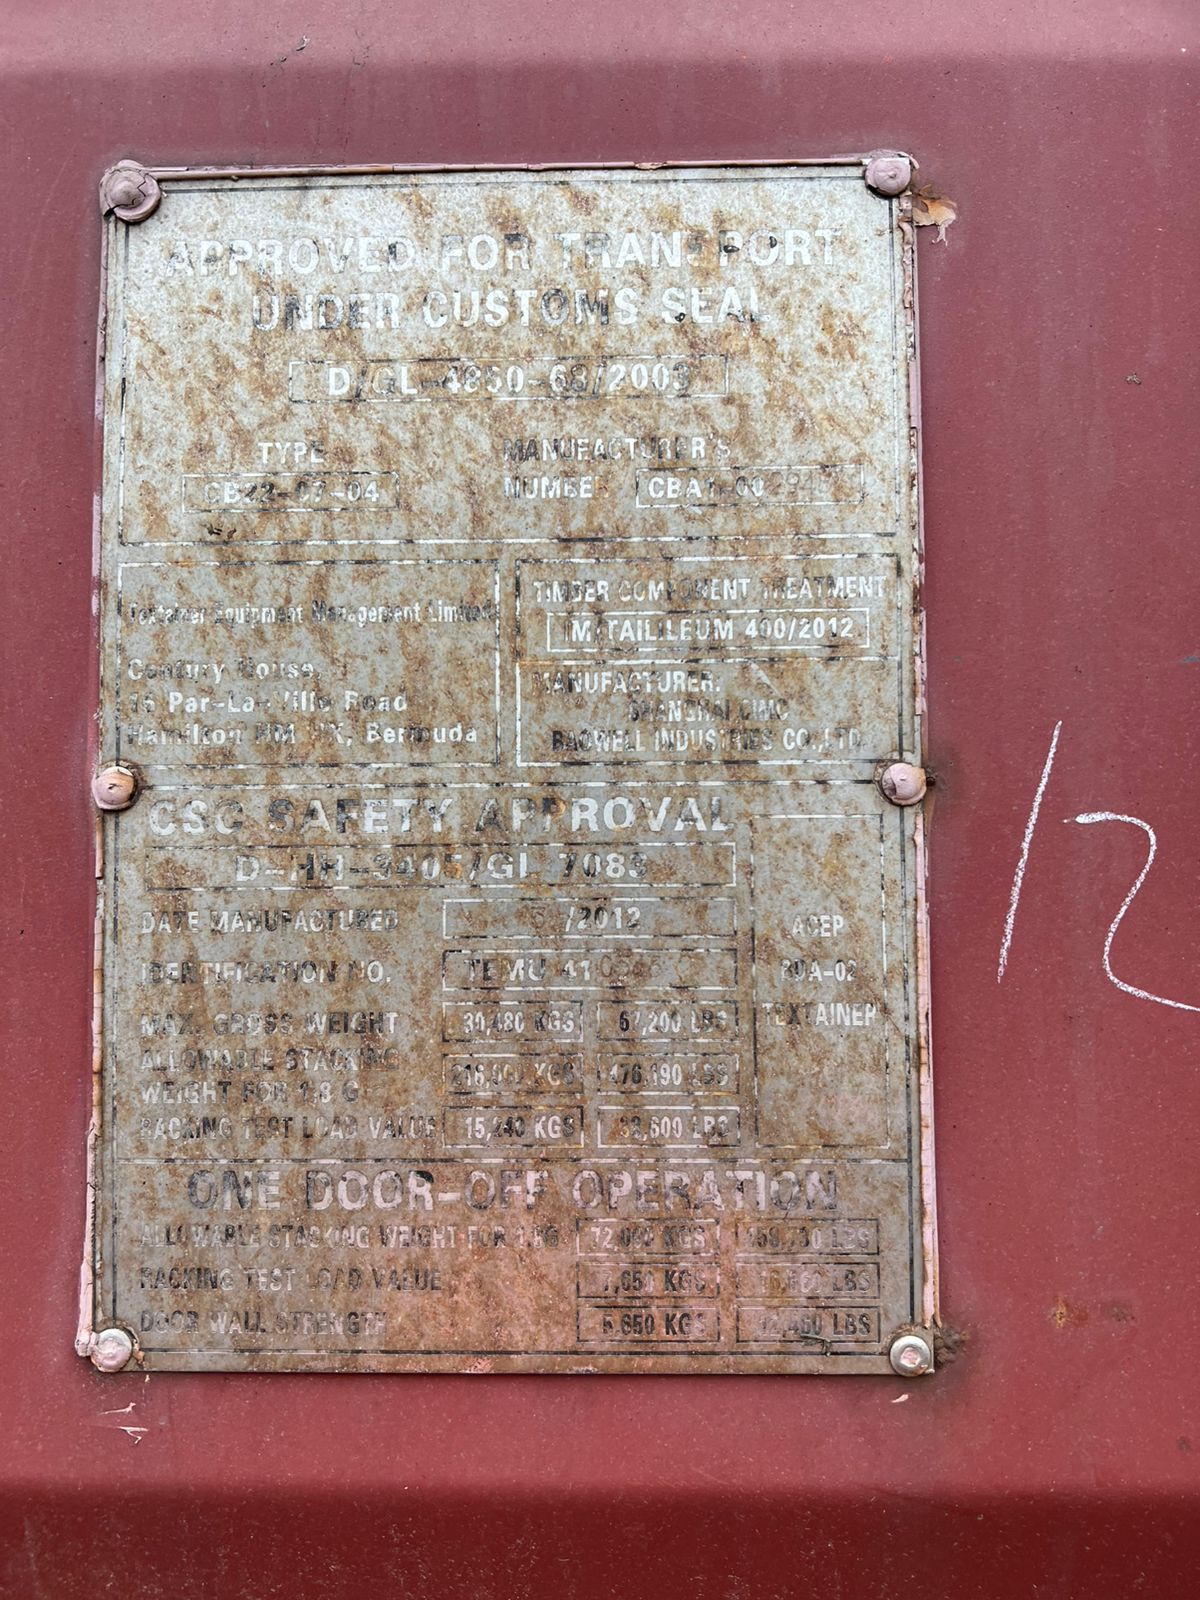 APPROVED FOR TRANSPORT
UNDER CUSTOMS SEAL
D/GL-4850-68/2003
TYPE
CB22-07-04
MANUFACTURER'S
NUMBER
TIMBER COMPONENT TREATMENT
IM/TAILILEUM 400/2012
Textainer Equipment Management Limited
Century House,
16 Par-La-Ville Road
Hamilton HM Bermuda
MANUFACTURER:
SHANGHAI CIMC
BAOWELL INDUSTRIES CO.,LTD.
CSC SAFETY APPROVAL
D-HH-3405/GL 7083
DATE MANUFACTURED /2012
IDENTIFICATION NO. TEMU
MAX. GROSS WEIGHT 30,480 KGS 67,200 LBS
ALLOWABLE STACKING
WEIGHT FOR 1.8 G 216,000 KGS 476,190 LBS
RACKING TEST LOAD VALUE 15,240 KGS 33,600 LBS
ACEP
BDA-02
TEXTAINER
ONE DOOR-OFF OPERATION
ALLOWABLE STACKING WEIGHT FOR 1.8G 72,000 KGS 158,730 LBS
RACKING TEST LOAD VALUE 7,650 KGS LBS
DOOR WALL STRENGTH 5,650 KGS 12,460 LBS
12